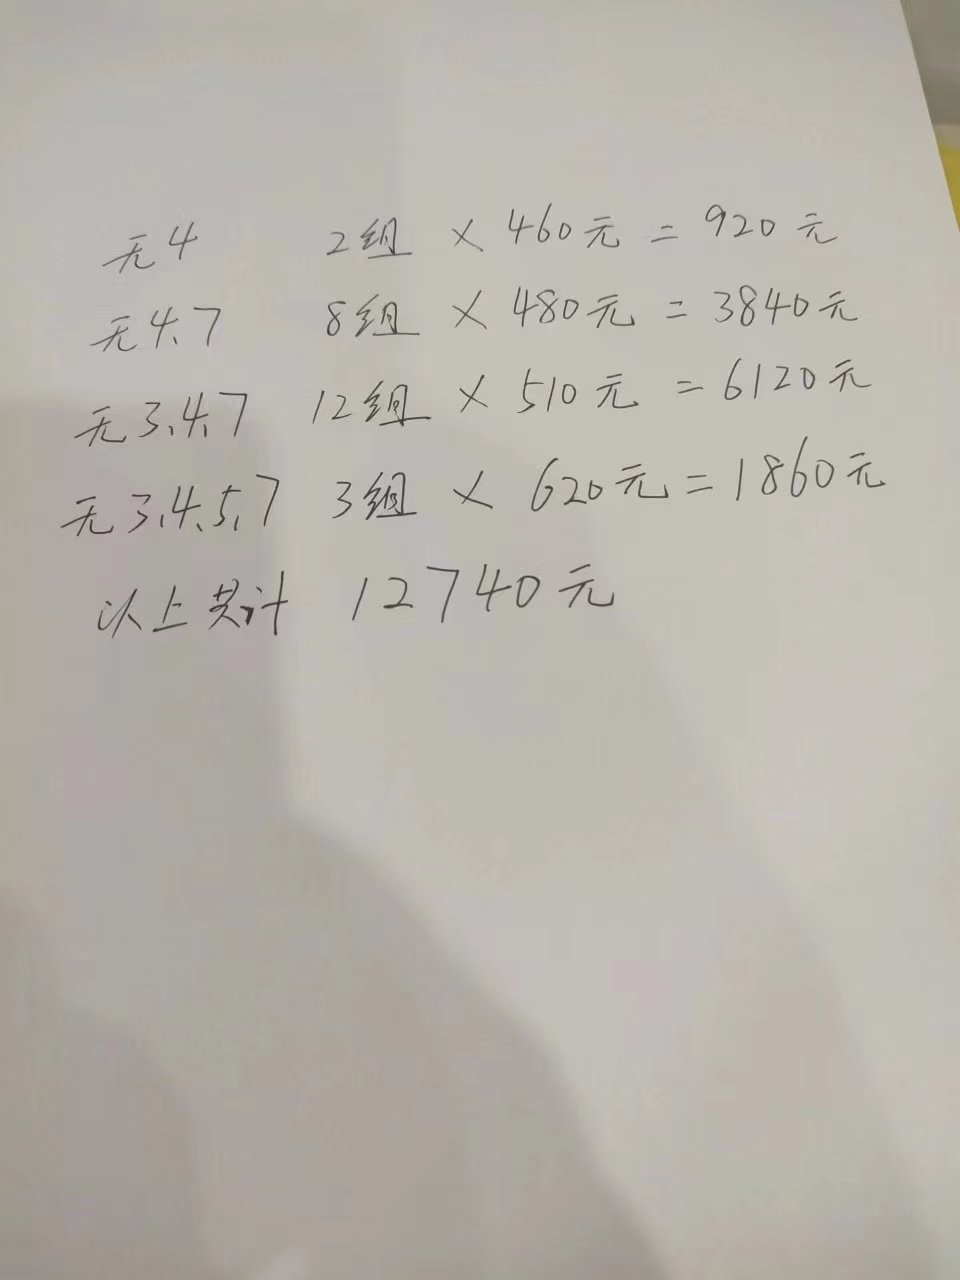 无4 2组 × 460元 = 920元
无4、7 8组 × 480元 = 3840元
无3、4、7 12组 × 510元 = 6120元
无3、4、5、7 3组 × 620元 = 1860元
以上共计 12740元